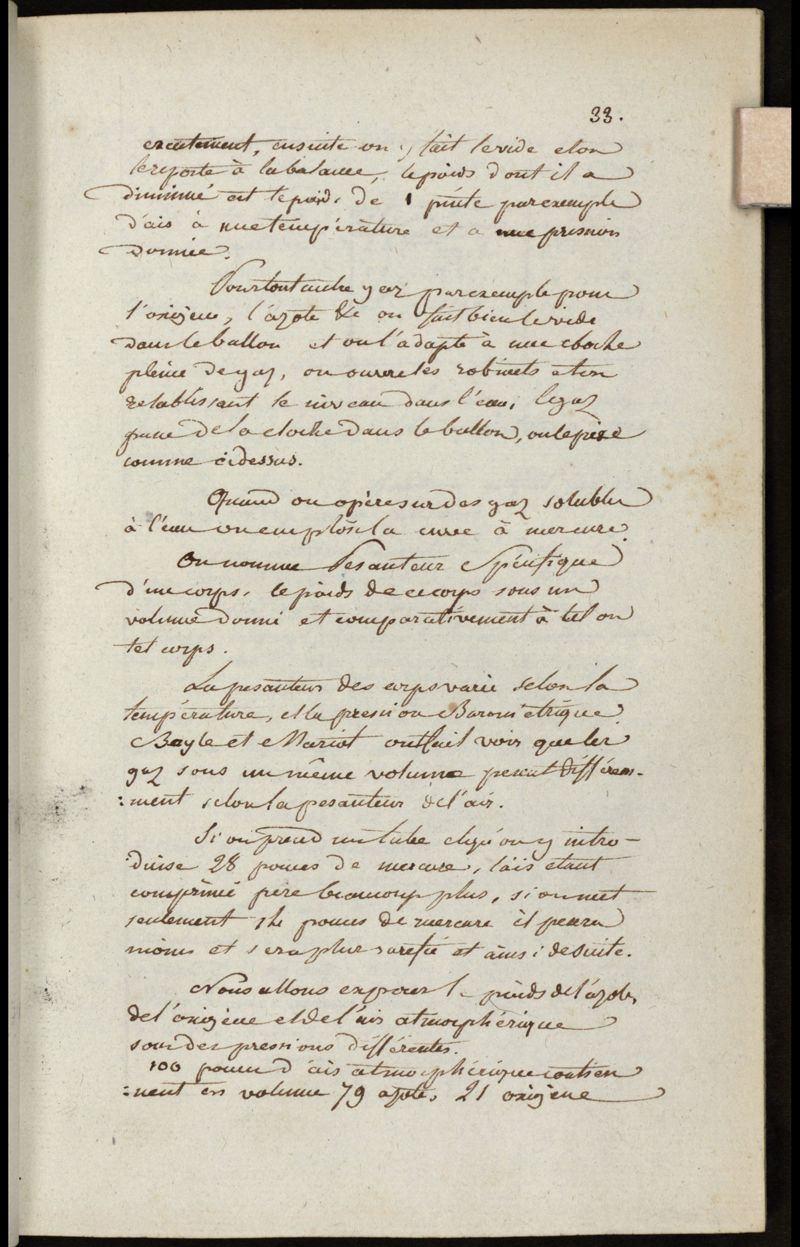 33.
exactement, ensuite on y fait le vide et on
le reporte à la balance, le poids dont il a
diminué est le poids de 1 pinte par exemple
d'air à une température et a une pression
donnée.
Pour tout autre gaz par exemple pour
l'oxigene, l'azote &c on fait bien le vide
dans le ballon et on l'adapte à une cloche
pleine de gaz, on ouvre les robinets et en
retablissant le niveau dans l'eau, le gaz
passe de la cloche dans le ballon, on le pèse
comme ci dessus.
Quand on opère sur des gaz solubles
à l'eau on emploi la cuve à mercure.
On nomme Pesanteur Spécifique
d'un corps, le poids de ce corps sous un
volume donné et comparativement à tel ou
tel corps.
La pesanteur des corps varie selon la
température, et la pression Barométrique.
Boyle et Mariot ont fait voir que les
gaz sous un même volume pesent différem-
:ment selon la pesanteur de l'air.
Si on prend un tube et qu'on y intro-
:duise 28 pouces de mercure, l'air etant
comprimé pèse beaucoup plus, si on met
seulement 14 pouces de mercure il pesera
moins et sera plus rarefié et ainsi de suite.
Nous allons exposer le poids de l'azote,
de l'oxigene et de l'air atmosphérique
sous des pressions différentes.
100 pouces d'air atmosphérique contien
:nent en volume 79 azote, 21 oxigène